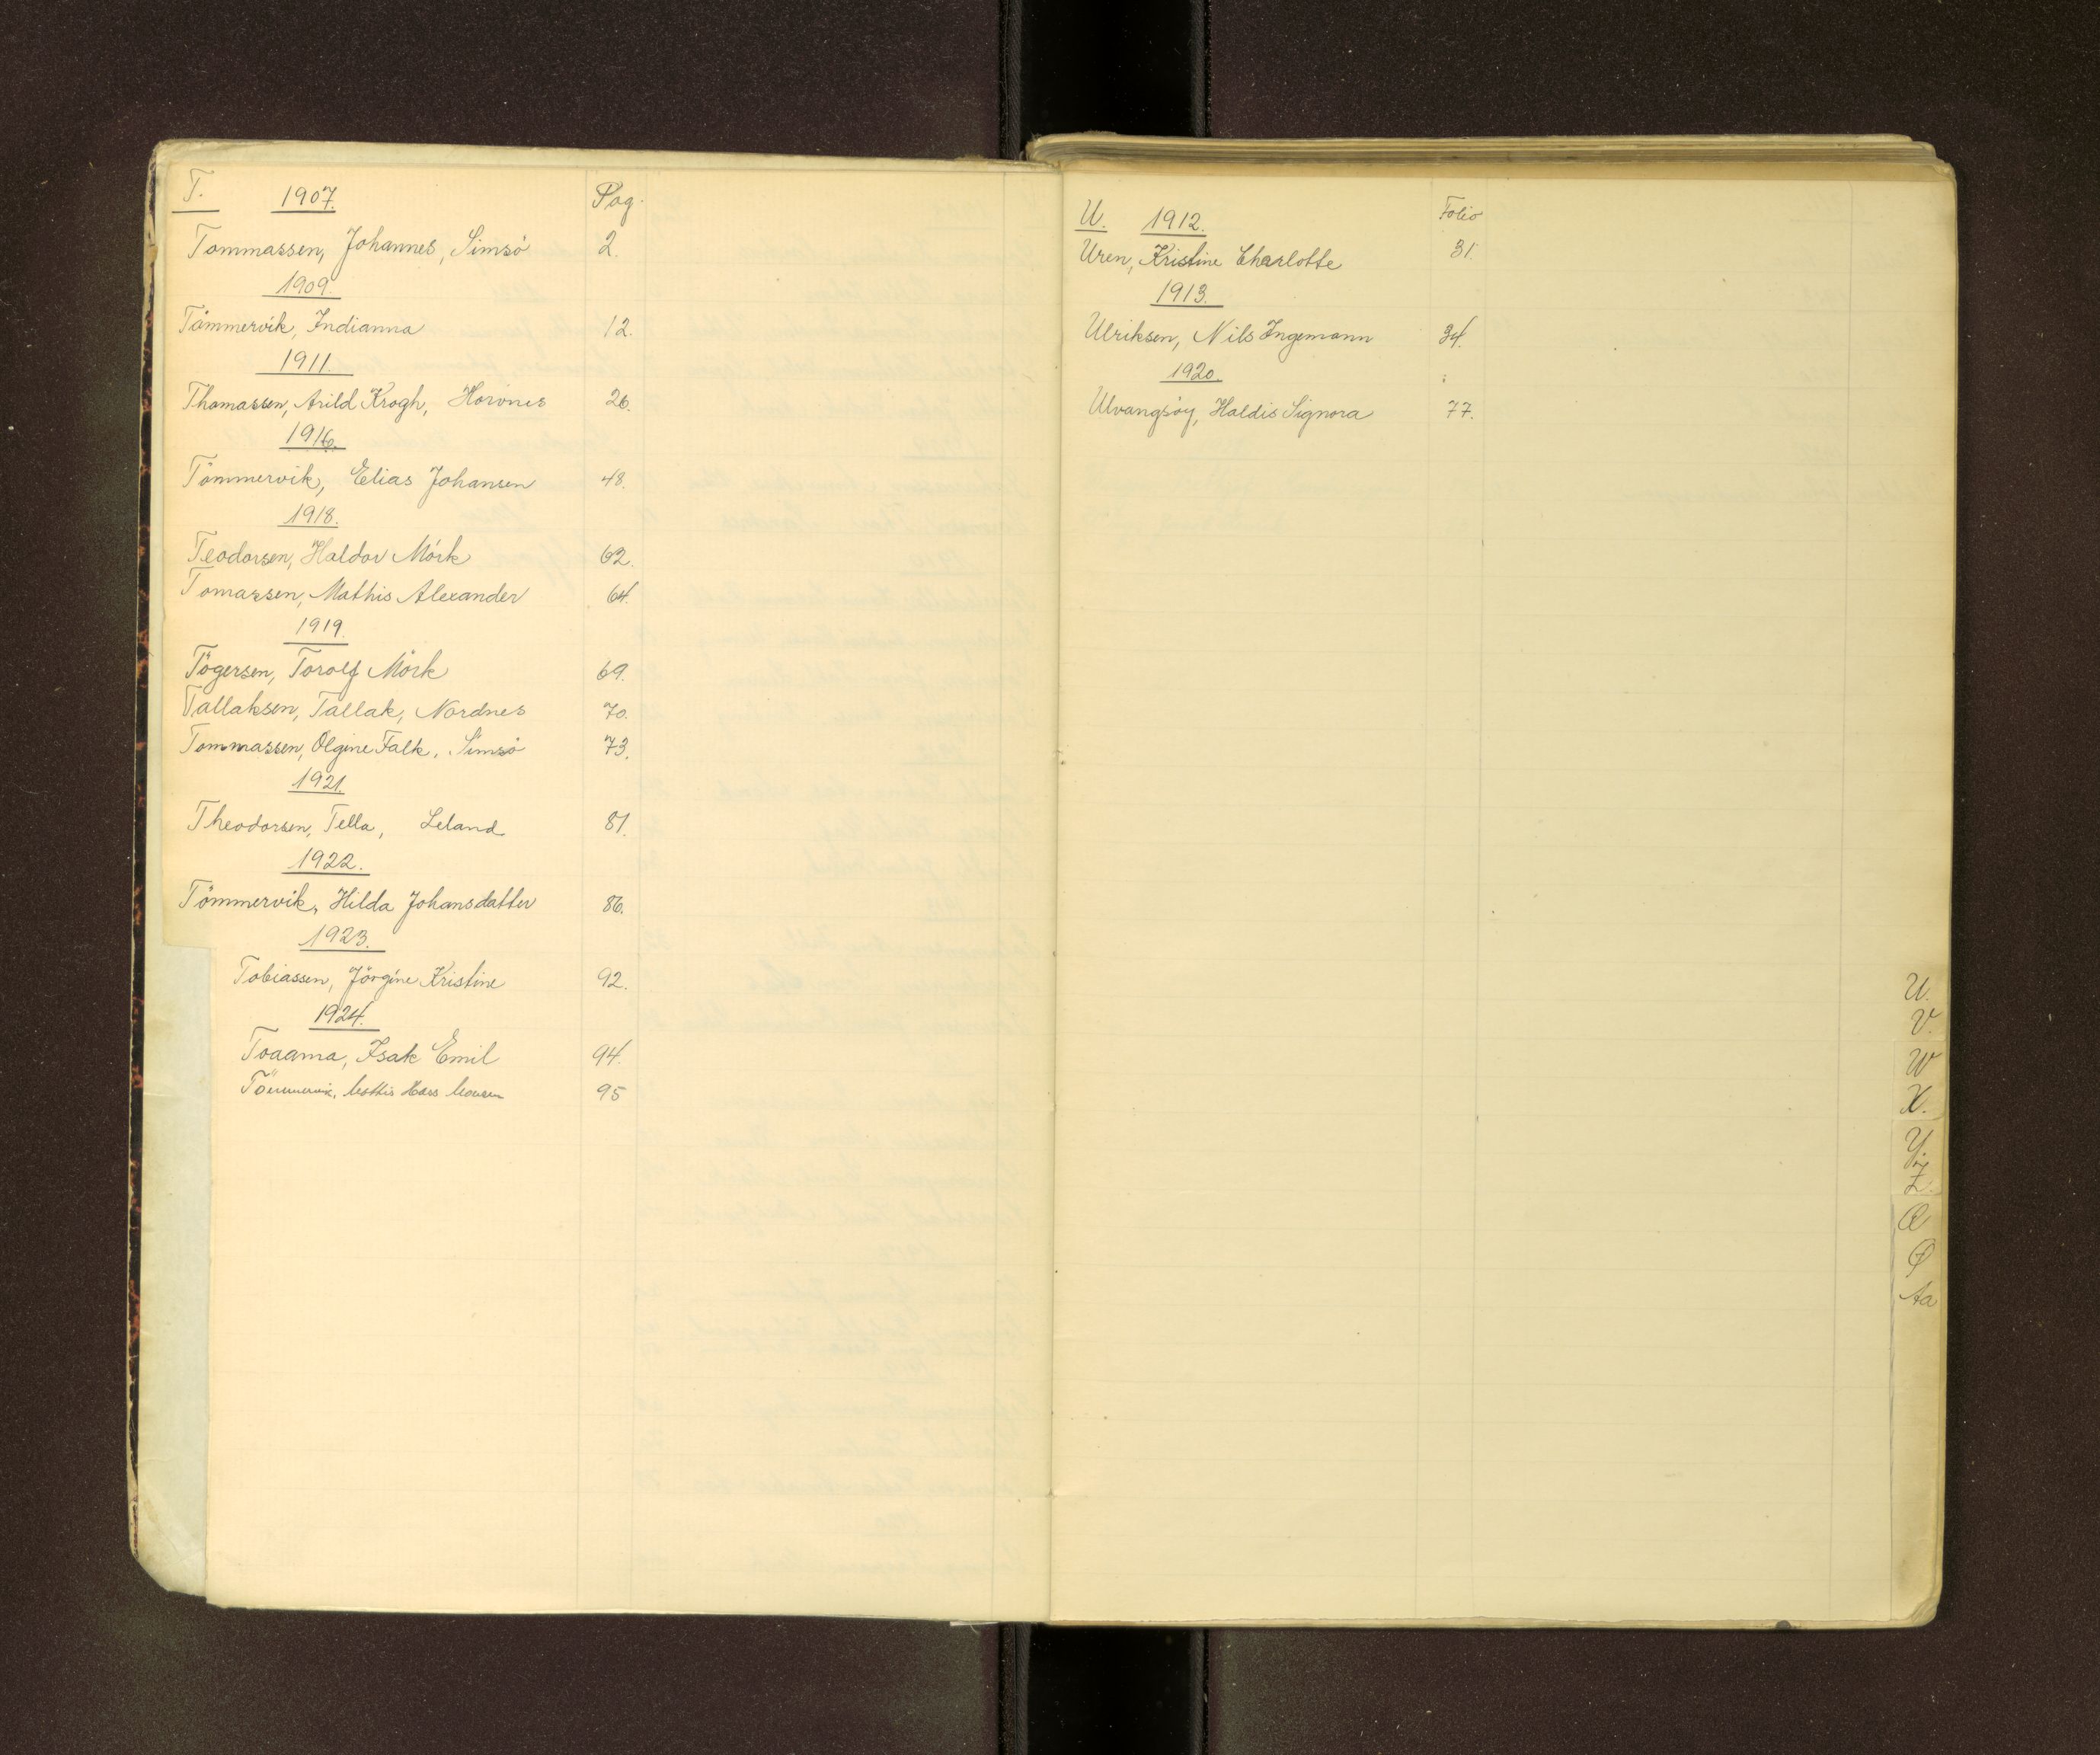 T. 1907. Pag.
Tommassen, Johannes, Simsö 2.
1909.
Tömmervik, Indianna 12.
1911.
Thomassen, Arild Krogh, Horvnes 26.
1916.
Tömmervik, Elias Johansen 48.
1918.
Teodorsen, Haldor Mörk 62.
Tomassen, Mathis Alexander 64.
1919.
Tögersen, Torolf Mörk 69.
Tallaksen, Tallak, Nordnes 70.
Tommassen, Olgine Falk, Simsö 73.
1921.
Theodorsen, Tella, Leland 81.
1922.
Tömmervik, Hilda Johansdatter 86.
1923.
Tobiassen, Jörgine Kristine 92.
1924.
Toaama, Isak Emil 94.
Tömmervik, Mathis 95
U. 1912. Folio
Uren, Kristine Charlotte 31.
1913.
Ulriksen, Nils Ingemann 34.
1920.
Ulvangsöy, Haldis Signora 77.
U.
V.
W
X.
Y.
Z.
Æ
Ø
Aa